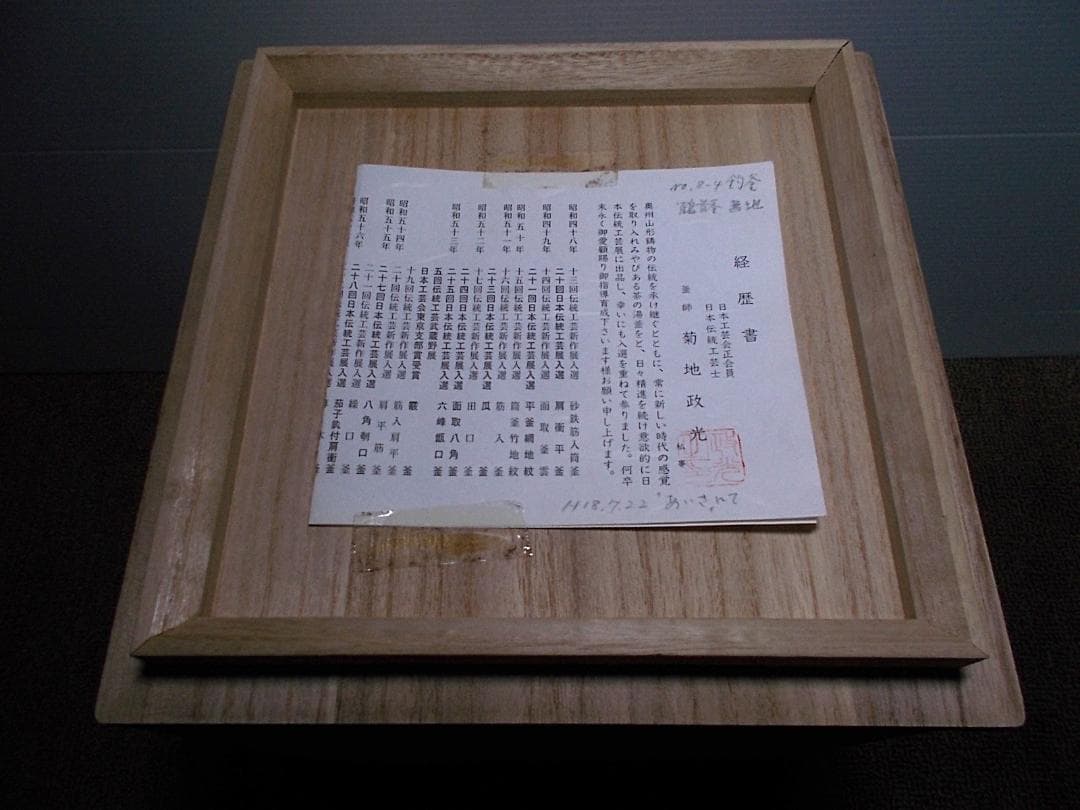 No. 8-4 釣釜
無地
経歴書
日本工芸会正会員
日本伝統工芸士
釜師 菊地政光
奥州山形鋳物の伝統を承け継ぐとともに、常に新しい時代の感覚
を取り入れみやびある茶の湯釜をと、日々精進を続け意欲的に日
本伝統工芸展に出品し、幸いにも入選を重ねて参りました。何卒
末永く御愛顧賜り御指導育成下さいます様お願い申し上げます。
昭和四十八年 十三回伝統工芸新作展入選 砂鉄筋入筒釜
二十回日本伝統工芸展入選 肩衝平釜
昭和四十九年 十四回伝統工芸新作展入選 面取釜雲
二十一回日本伝統工芸展入選 平釜網地紋
昭和五十年 十五回伝統工芸新作展入選 筒釜竹地紋
昭和五十一年 十六回伝統工芸新作展入選 筋入釜
二十三回日本伝統工芸展入選 瓜釜
昭和五十二年 十七回伝統工芸新作展入選 田口釜
二十四回日本伝統工芸展入選 面取八角釜
昭和五十三年 二十五回日本伝統工芸展入選 六峰甑口釜
五回伝統工芸武蔵野展
日本工芸会東京支部賞受賞 叢釜
昭和五十四年 十九回伝統工芸新作展入選 筋入肩平釜
昭和五十五年 二十回伝統工芸新作展入選 肩平筋釜
二十七回日本伝統工芸展入選 八角朝口釜
昭和五十六年 二十一回伝統工芸新作展入選 繰口釜
二十八回日本伝統工芸展入選 茄子鐶付肩衝釜
H18.7.22 あいさにて